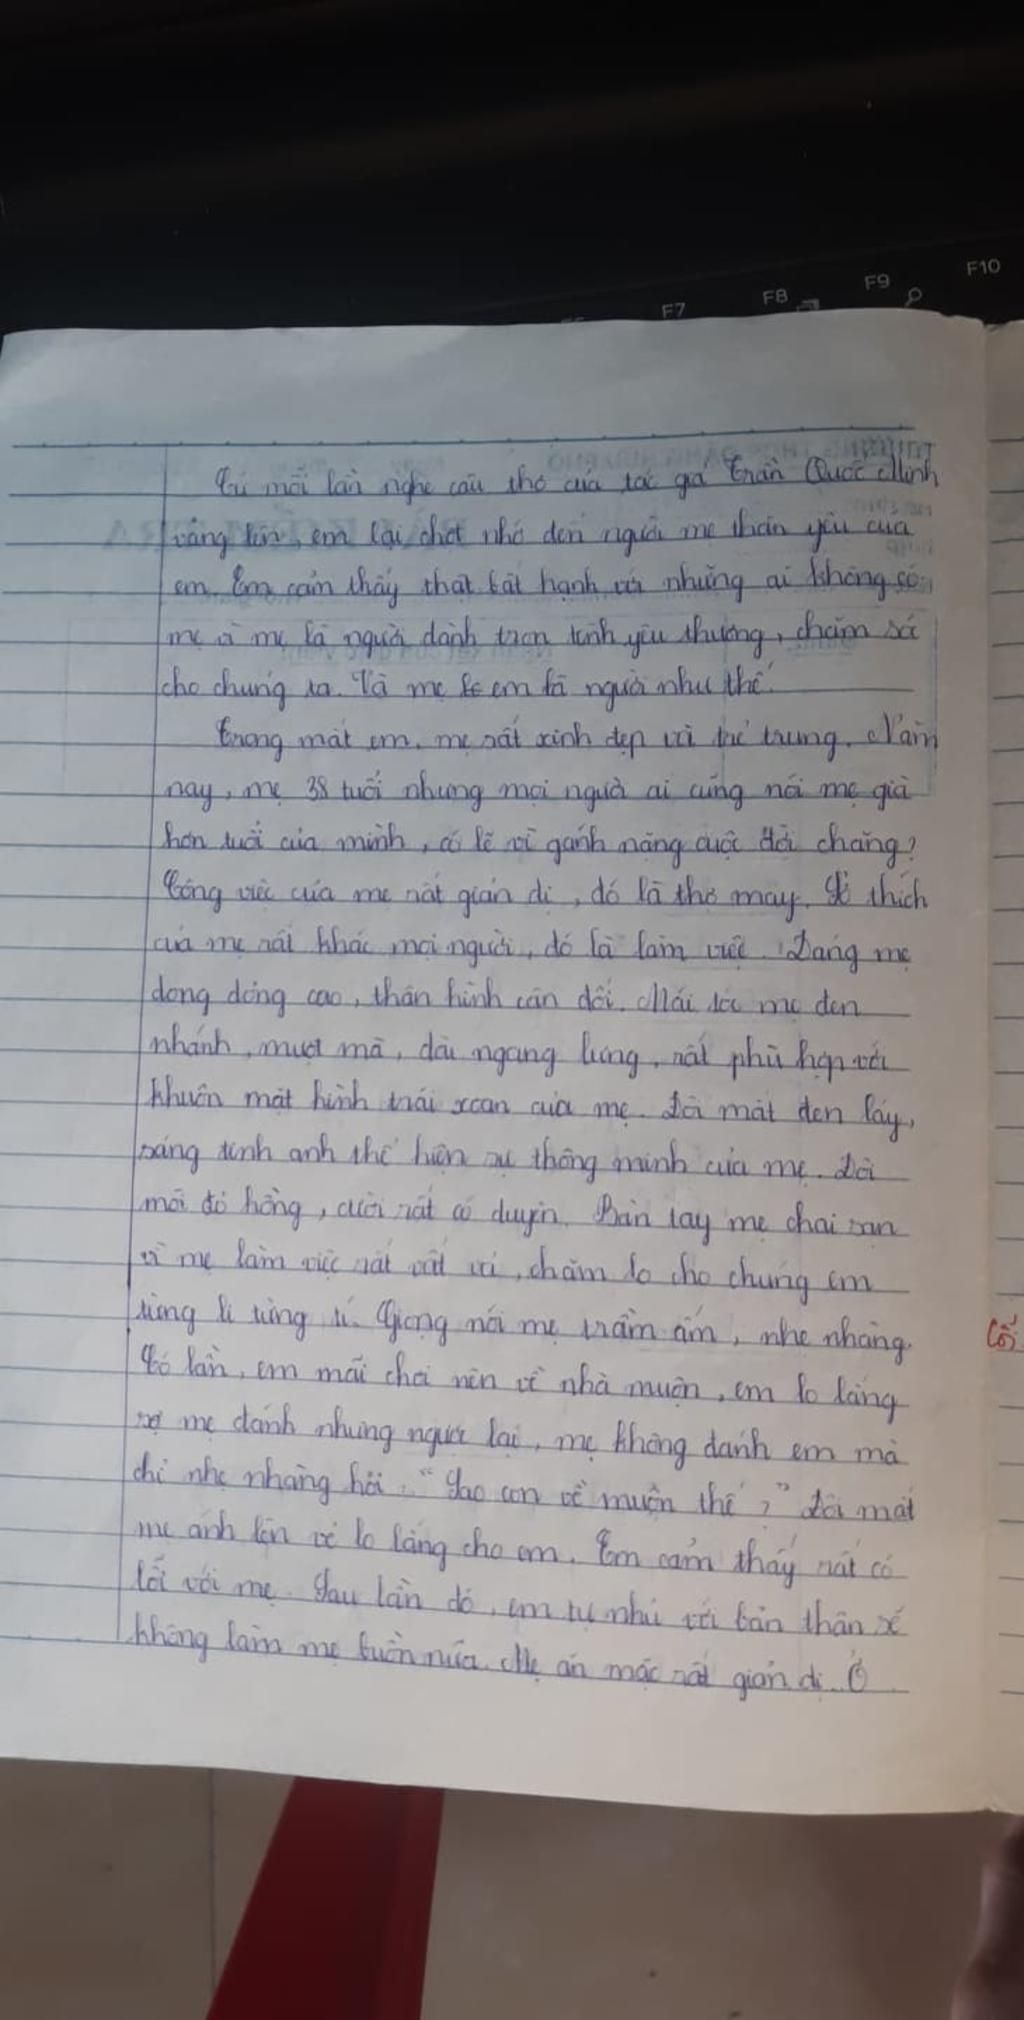 F7 F8 F9 F10
Cứ mỗi lần nghe câu thơ của tác giả Trần Quốc Minh
vâng lên, em lại chợt nhớ đến người mẹ thân yêu của
em. Em cảm thấy thật bất hạnh với những ai không có
mẹ vì mẹ là người dành trọn tình yêu thương, chăm sóc
cho chúng ta. Và mẹ em là người như thế.
Trong mắt em, mẹ rất xinh đẹp và trẻ trung. Năm
nay, mẹ 38 tuổi nhưng mọi người ai cũng nói mẹ già
hơn tuổi của mình, có lẽ vì gánh nặng cuộc đời chăng?
Công việc của mẹ rất giản dị, đó là thợ may. Sở thích
của mẹ rất khác mọi người, đó là làm việc. Dáng mẹ
dong dỏng cao, thân hình cân đối. Mái tóc mẹ đen
nhánh, mượt mà, dài ngang lưng, rất phù hợp với
khuôn mặt hình trái xoan của mẹ. Đôi mắt đen láy,
sáng tinh anh thể hiện sự thông minh của mẹ. Đôi
môi đỏ hồng, cười rất có duyên. Bàn tay mẹ chai sạn
vì mẹ làm việc rất vất vả, chăm lo cho chúng em
từng li từng tí. Giọng nói mẹ trầm ấm, nhẹ nhàng.
Có lần, em mãi chơi nên về nhà muộn, em lo lắng
sợ mẹ đánh nhưng ngược lại, mẹ không đánh em mà
chỉ nhẹ nhàng hỏi: "Sao con về muộn thế?" Đôi mắt
mẹ ánh lên vẻ lo lắng cho em. Em cảm thấy rất có
lỗi với mẹ. Sau lần đó, em tự nhủ với bản thân sẽ
không làm mẹ buồn nữa. Mẹ ăn mặc rất giản dị. Ở